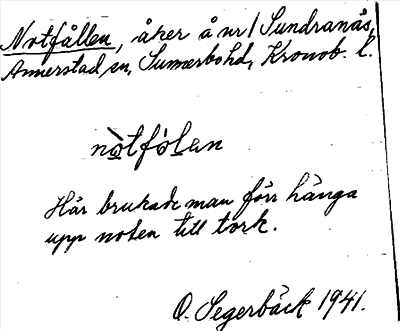 Notfållen, åker å nr 1 Sundranäs,
Annerstad sn, Sunnerbo hd, Kronob. l.
nòtfȯlan
Här brukade man förr hänga
upp noten till tork.
O. Segerbäck 1941.